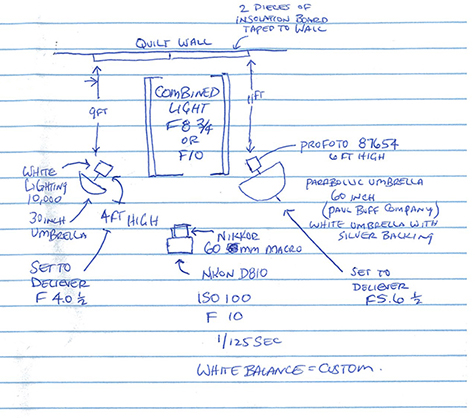 2 PIECES OF
INSOLATION BOARD
TAPED TO WALL
QUILT WALL
9FT
COMBINED
LIGHT
F8 3/4
OR
F10
11FT
WHITE
LIGHTING
10,000
30 INCH
UMBRELLA
4FT HIGH
PROFOTO 87654
6FT HIGH
PARABOLIC UMBRELLA
60 INCH
(PAUL BUFF COMPANY)
WHITE UMBRELLA WITH
SILVER BACKING
NIKKOR
60 mm MACRO
NIKON D810
SET TO
DELIEVER
F 4.0 1/2
SET TO
DELIEVER
F5.6 1/2
ISO 100
F 10
1/125 SEC
WHITE BALANCE = CUSTOM.